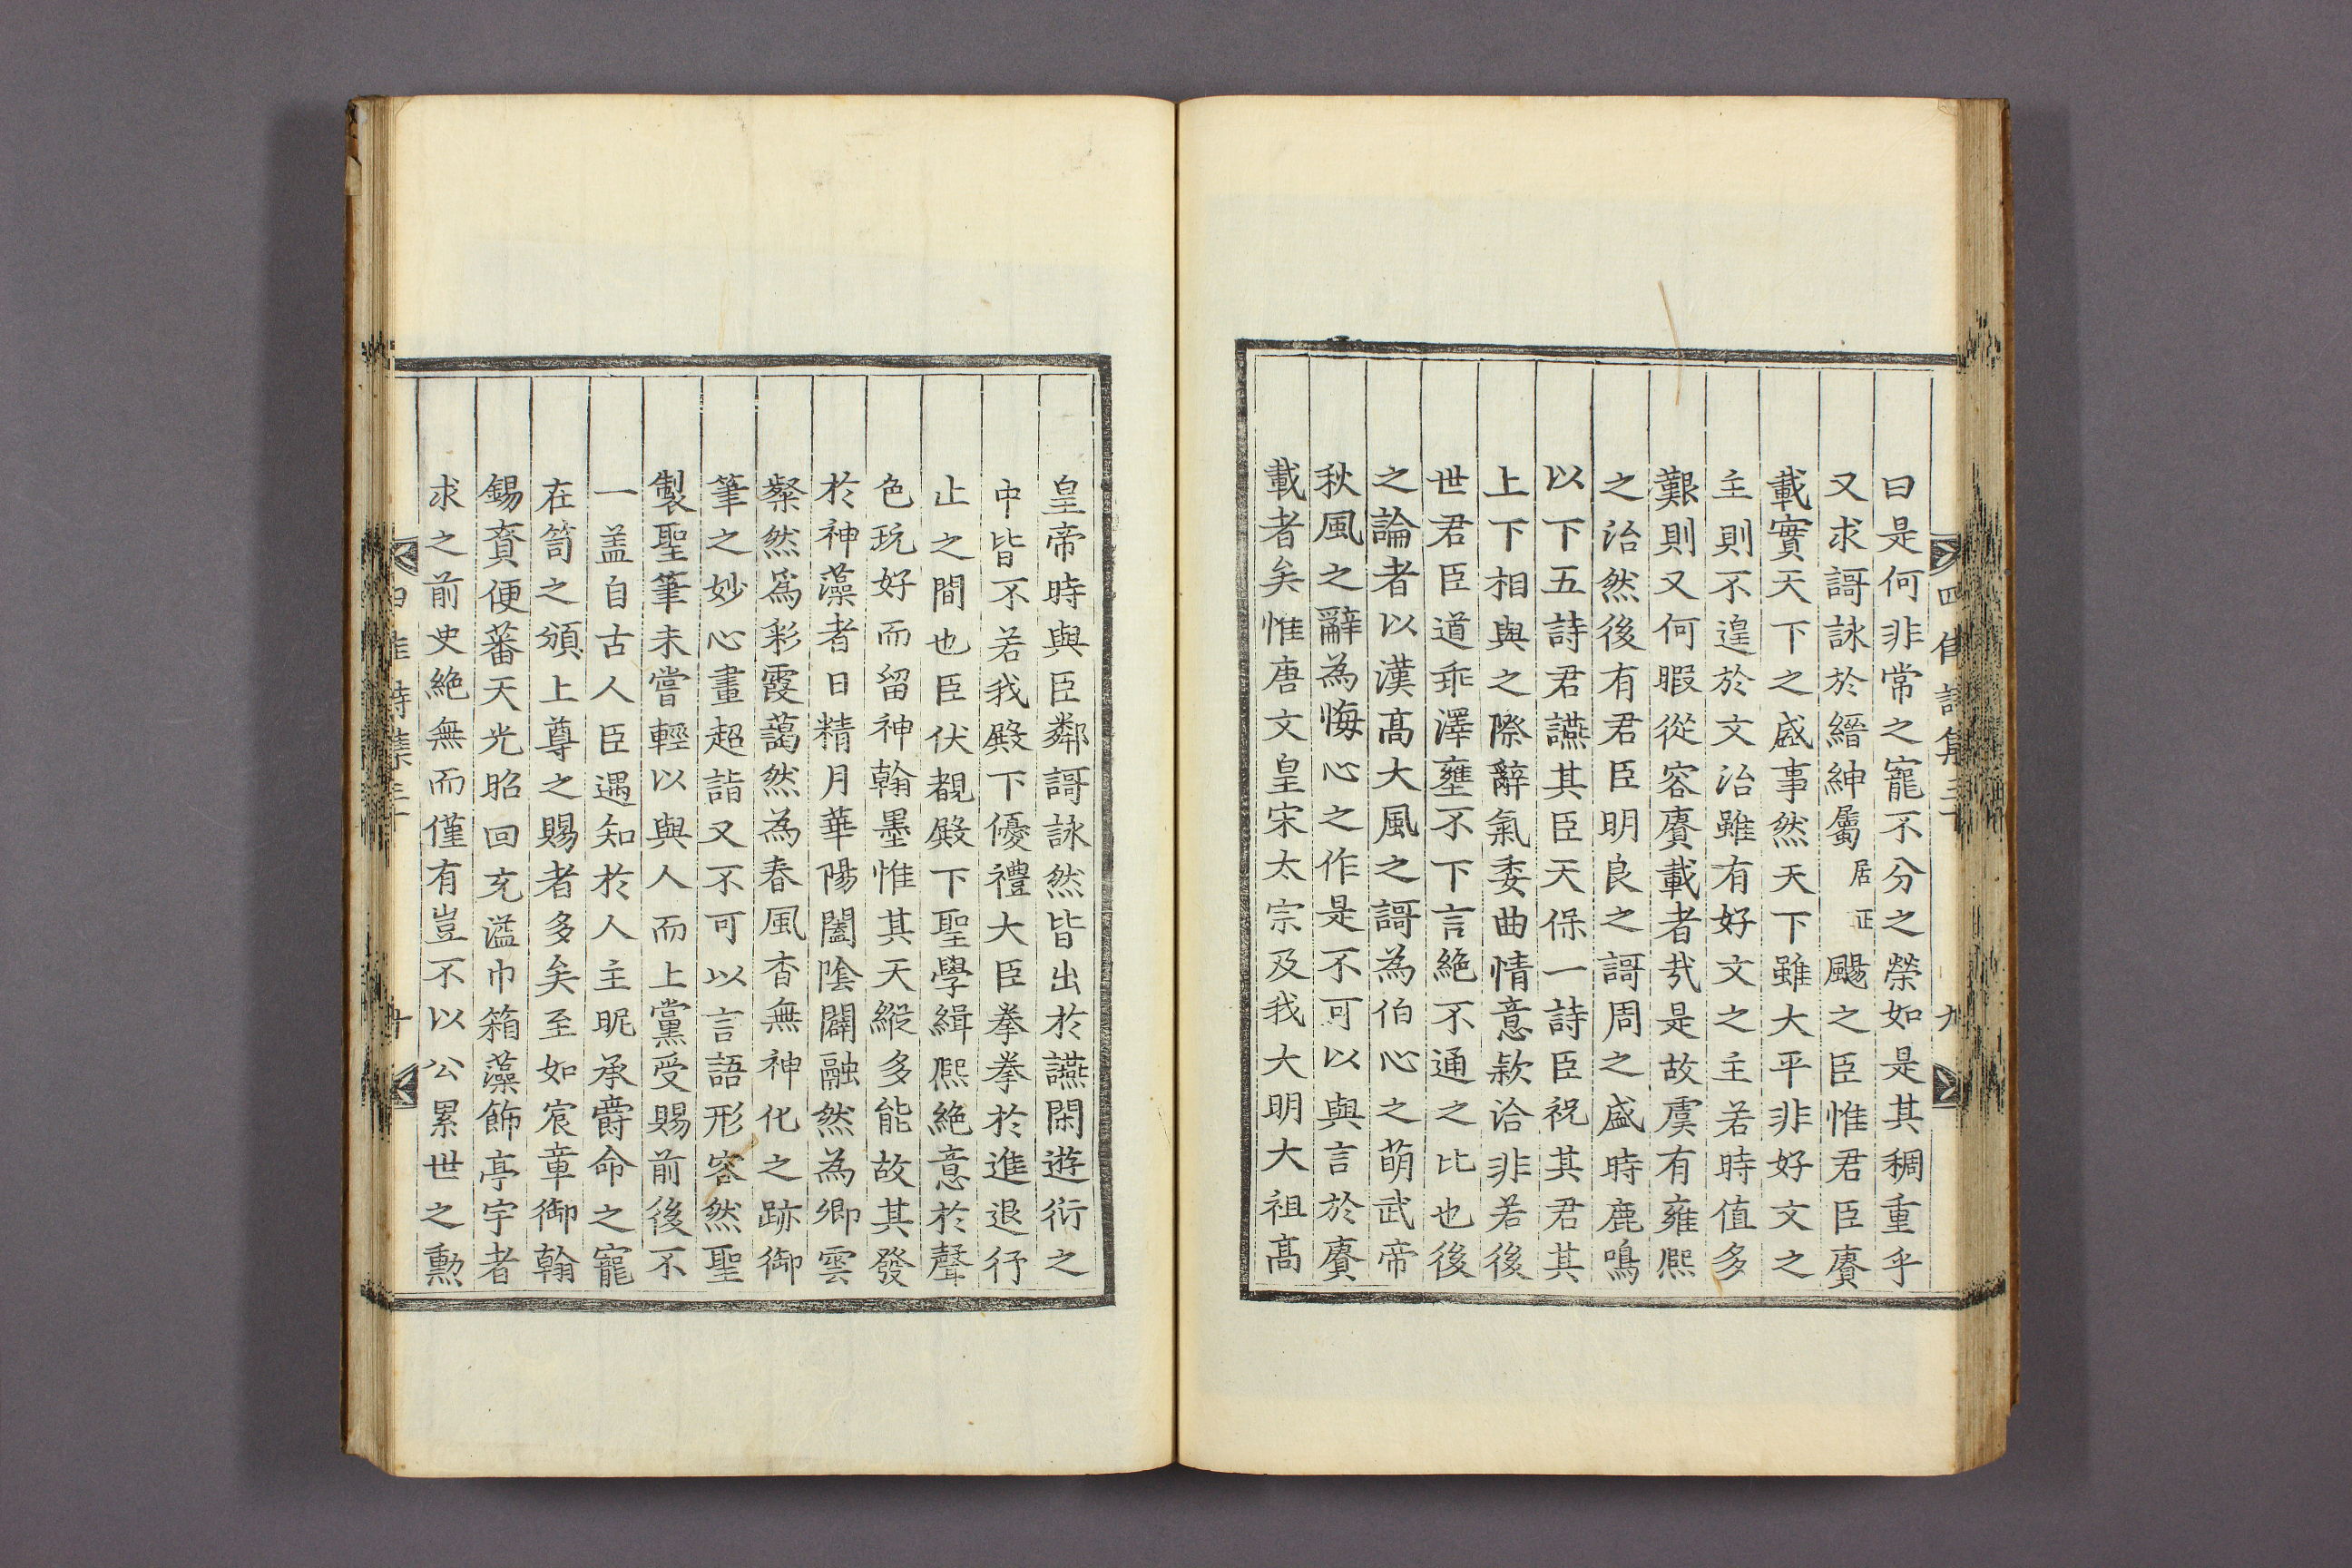 四佳詩集三十
九
曰是何非常之寵不分之榮如是其稠重乎
又求謌詠於縉紳屬居正颺之臣惟君臣賡
載實天下之盛事然天下雖大平非好文之
主則不遑於文治雖有好文之主若時值多
艱則又何暇從容賡載者㢤是故虞有雍熈
之治然後有君臣明良之謌周之盛時鹿鳴
以下五詩君讌其臣天保一詩臣祝其君其
上下相與之際辭氣委曲情意欵洽非若後
世君臣道乖澤壅不下言絶不通之比也後
之論者以漢髙大風之謌為伯心之萌武帝
秋風之辭為悔心之作是不可以與言於賡
載者矣惟唐文皇宋太宗及我大明大祖髙
皇帝時與臣鄰謌詠然皆出於讌閑遊衍之
中皆不若我殿下優禮大臣拳拳於進退行
止之間也臣伏覩殿下聖學緝熈絶意於聲
色玩好而留神翰墨惟其天縱多能故其發
於神藻者日精月華陽闔陰闢融然為卿雲
粲然爲彩霞藹然為春風杳無神化之跡御
筆之妙心畫超詣又不可以言語形容然聖
製聖筆未嘗輕以與人而上黨受賜前後不
一盖自古人臣遇知於人主昵承爵命之寵
在笥之頒上尊之賜者多矣至如宸章御翰
錫賚便蕃天光昭回充溢巾箱藻飾亭宇者
求之前史絶無而僅有豈不以公累世之勳
四佳詩集三十
十